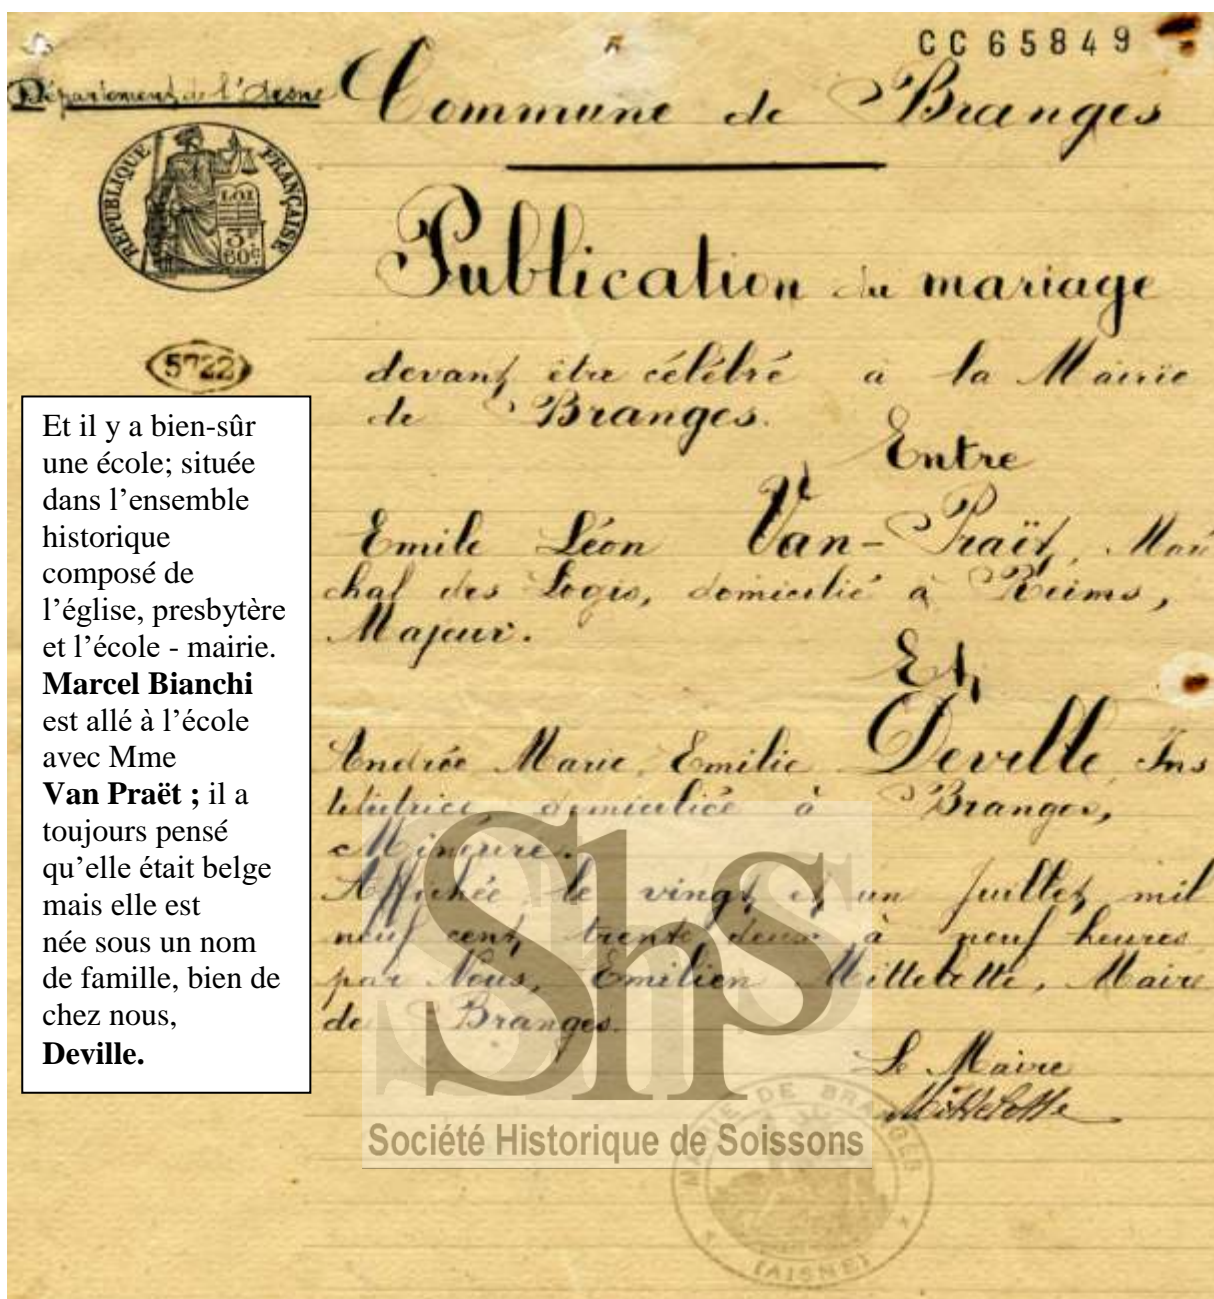 CC65849
Département de l'Aisne
Commune de Branges
RÉPUBLIQUE FRANÇAISE
LOI
3F
60c
Publication du mariage
5722
devant être célébré à la Mairie
de Branges.
Entre
Emile Léon Van-Praët, Maré
chal des Logis, domicilié à Reims,
Majeur.
Et
Andrée Marie Emilie Deville Ins
titutrice domiciliée à Branges,
Mineure.
Affichée le vingt et un juillet mil
neuf cent trente deux à neuf heures
par Nous, Emilien Mittelette, Maire
de Branges.
Le Maire
Mittelette
MAIRIE DE BRANGES
(AISNE)
Et il y a bien-sûr
une école; située
dans l'ensemble
historique
composé de
l'église, presbytère
et l'école - mairie.
Marcel Bianchi
est allé à l'école
avec Mme
Van Praët ; il a
toujours pensé
qu'elle était belge
mais elle est
née sous un nom
de famille, bien de
chez nous,
Deville.
Shs
Société Historique de Soissons